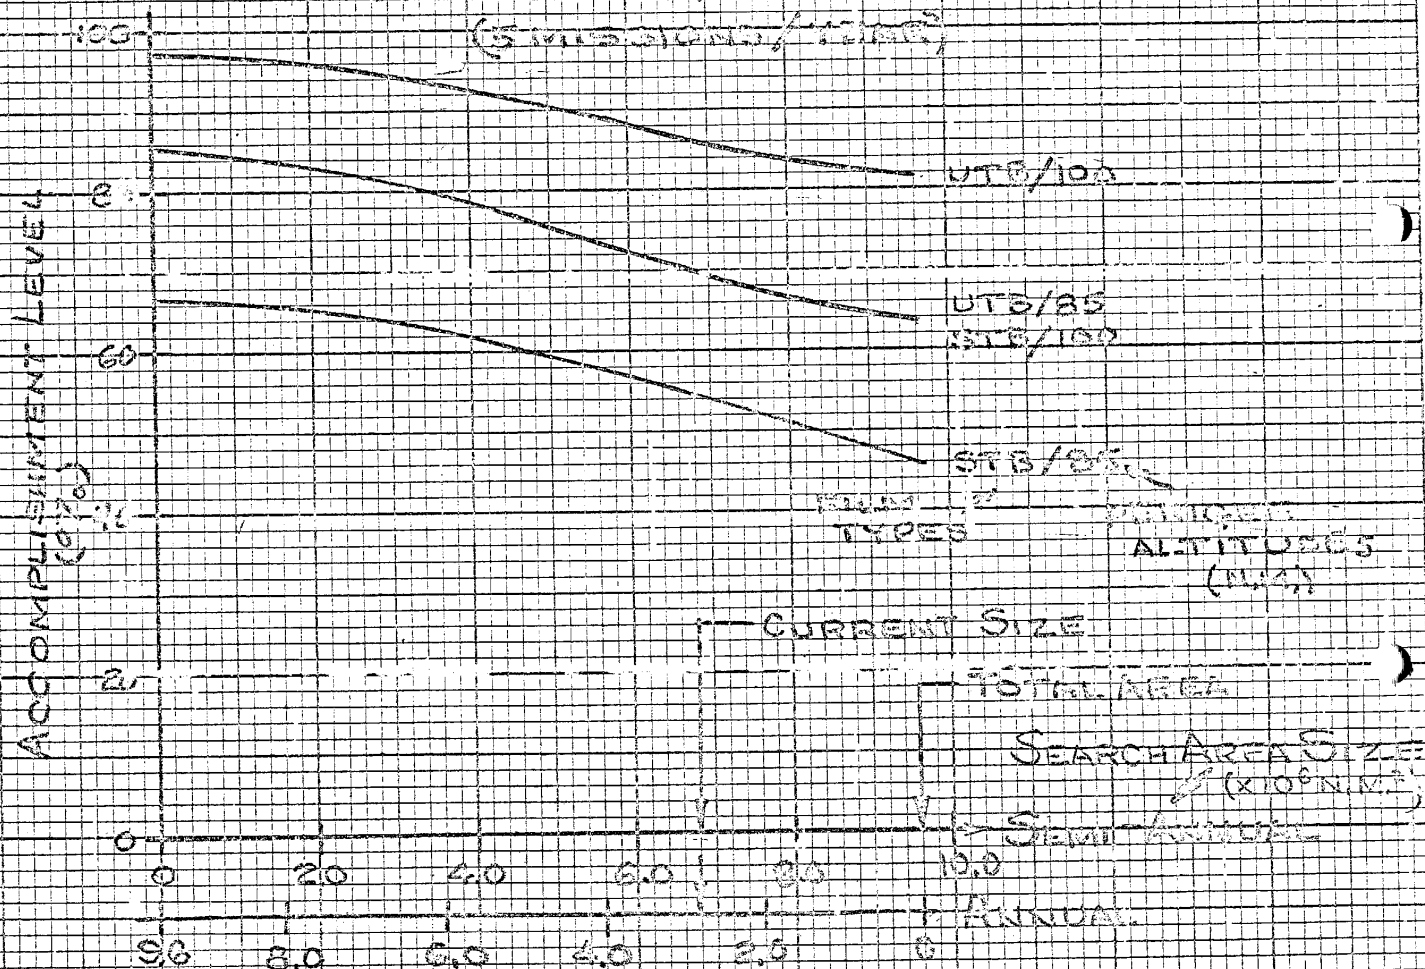 100
(5 MISSIONS/
UTB/100
ACCOMPLISHMENT LEVEL
(%)
UTB/85
STB/100
60
STB/85
FILM
TYPES
ALTITUDES
(N.M.)
CURRENT SIZE
20
TOTAL AREA
SEARCH AREA SIZE
(X10⁶ N.M.²)
0
SEMI-ANNUAL
0 2.0 4.0 6.0 8.0 10.0
ANNUAL
9.6 8.0 6.0 4.0 2.0 0